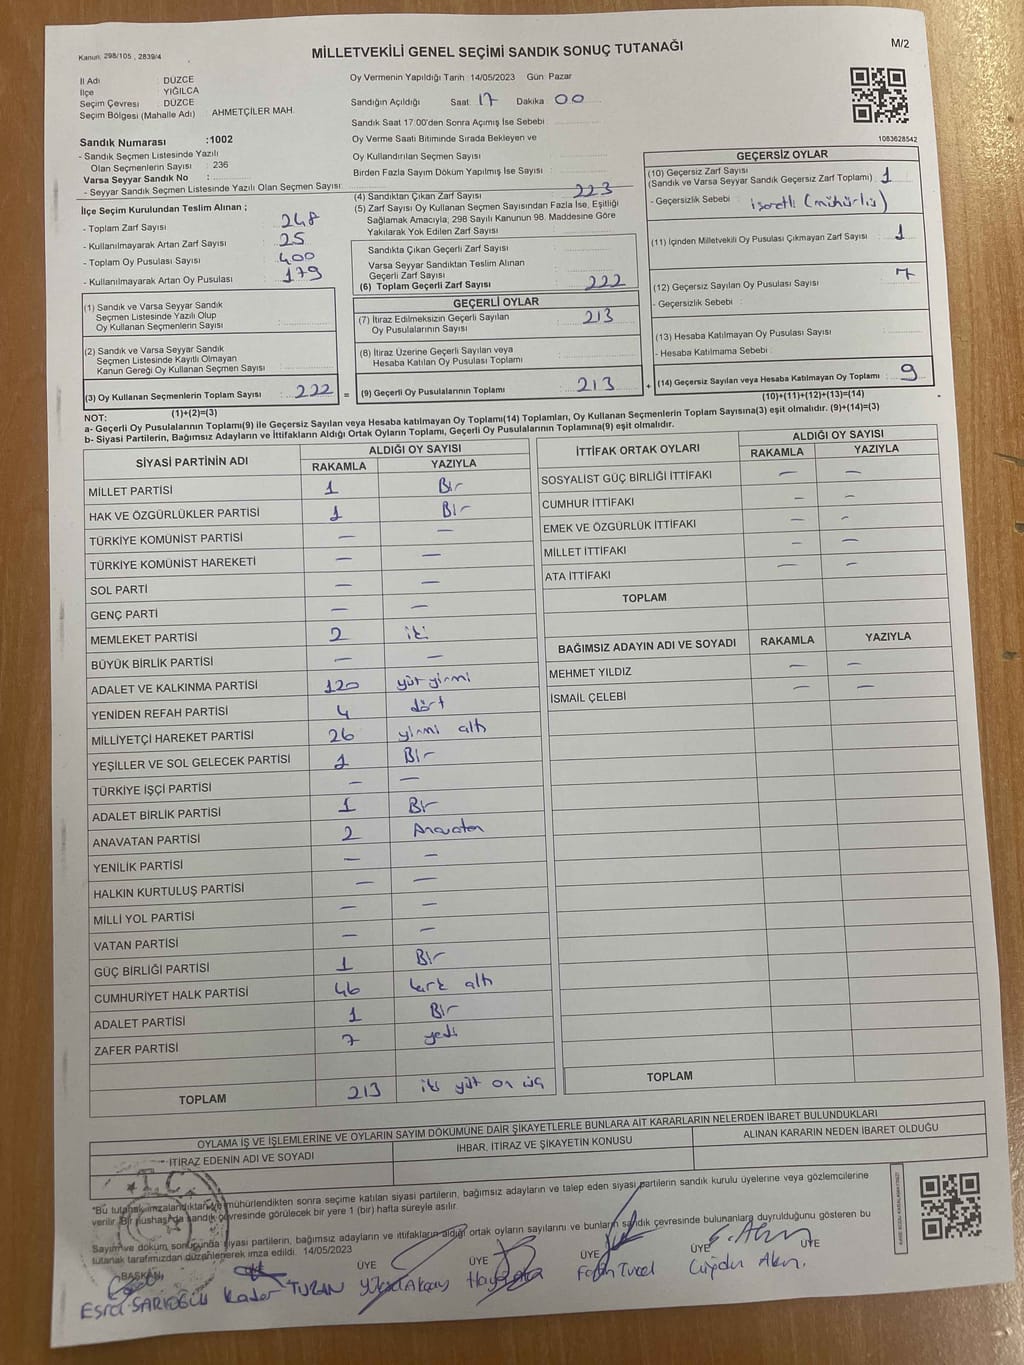 Kanun: 298/105 , 2839/4
MİLLETVEKİLİ GENEL SEÇİMİ SANDIK SONUÇ TUTANAĞI
M/2
İl Adı : DÜZCE
İlçe : YIĞILCA
Seçim Çevresi : DÜZCE
Seçim Bölgesi (Mahalle Adı) : AHMETÇİLER MAH.
Oy Vermenin Yapıldığı Tarih : 14/05/2023 Gün: Pazar
Sandığın Açıldığı Saat 17 Dakika 00
Sandık Saat 17:00'den Sonra Açımış İse Sebebi :
Oy Verme Saati Bitiminde Sırada Bekleyen ve
Oy Kullandırılan Seçmen Sayısı :
Birden Fazla Sayım Döküm Yapılmış İse Sayısı :
1083628542
Sandık Numarası :1002
- Sandık Seçmen Listesinde Yazılı
Olan Seçmenlerin Sayısı : 236
Varsa Seyyar Sandık No :
- Seyyar Sandık Seçmen Listesinde Yazılı Olan Seçmen Sayısı:
İlçe Seçim Kurulundan Teslim Alınan ;
- Toplam Zarf Sayısı : 248
- Kullanılmayarak Artan Zarf Sayısı : 25
- Toplam Oy Pusulası Sayısı : 400
- Kullanılmayarak Artan Oy Pusulası : 179
(1) Sandık ve Varsa Seyyar Sandık
Seçmen Listesinde Yazılı Olup
Oy Kullanan Seçmenlerin Sayısı :
(2) Sandık ve Varsa Seyyar Sandık
Seçmen Listesinde Kayıtlı Olmayan
Kanun Gereği Oy Kullanan Seçmen Sayısı :
(3) Oy Kullanan Seçmenlerin Toplam Sayısı : 222 =
(1)+(2)=(3)
(4) Sandıktan Çıkan Zarf Sayısı : 223
(5) Zarf Sayısı Oy Kullanan Seçmen Sayısından Fazla İse, Eşitliği
Sağlamak Amacıyla, 298 Sayılı Kanunun 98. Maddesine Göre
Yakılarak Yok Edilen Zarf Sayısı :
Sandıkta Çıkan Geçerli Zarf Sayısı :
Varsa Seyyar Sandıktan Teslim Alınan
Geçerli Zarf Sayısı :
(6) Toplam Geçerli Zarf Sayısı : 222
GEÇERLİ OYLAR
(7) İtiraz Edilmeksizin Geçerli Sayılan
Oy Pusulalarının Sayısı : 213
(8) İtiraz Üzerine Geçerli Sayılan veya
Hesaba Katılan Oy Pusulası Toplamı :
(9) Geçerli Oy Pusulalarının Toplamı : 213 +
GEÇERSİZ OYLAR
(10) Geçersiz Zarf Sayısı
(Sandık ve Varsa Seyyar Sandık Geçersiz Zarf Toplamı) : 1
- Geçersizlik Sebebi : işaretli (mühürlü)
(11) İçinden Milletvekili Oy Pusulası Çıkmayan Zarf Sayısı : 1
(12) Geçersiz Sayılan Oy Pusulası Sayısı : 7
- Geçersizlik Sebebi :
(13) Hesaba Katılmayan Oy Pusulası Sayısı :
- Hesaba Katılmama Sebebi :
(14) Geçersiz Sayılan veya Hesaba Katılmayan Oy Toplamı : 9
(10)+(11)+(12)+(13)=(14)
NOT:
a- Geçerli Oy Pusulalarının Toplamı(9) ile Geçersiz Sayılan veya Hesaba katılmayan Oy Toplamı(14) Toplamları, Oy Kullanan Seçmenlerin Toplam Sayısına(3) eşit olmalıdır. (9)+(14)=(3)
b- Siyasi Partilerin, Bağımsız Adayların ve İttifakların Aldığı Ortak Oyların Toplamı, Geçerli Oy Pusulalarının Toplamına(9) eşit olmalıdır.
SİYASİ PARTİNİN ADI ALDIĞI OY SAYISI
RAKAMLA YAZIYLA
MİLLET PARTİSİ 1 Bir
HAK VE ÖZGÜRLÜKLER PARTİSİ 1 Bir
TÜRKİYE KOMÜNİST PARTİSİ — —
TÜRKİYE KOMÜNİST HAREKETİ — —
SOL PARTİ — —
GENÇ PARTİ — —
MEMLEKET PARTİSİ 2 iki
BÜYÜK BİRLİK PARTİSİ — —
ADALET VE KALKINMA PARTİSİ 120 yüz yirmi
YENİDEN REFAH PARTİSİ 4 dört
MİLLİYETÇİ HAREKET PARTİSİ 26 yirmi altı
YEŞİLLER VE SOL GELECEK PARTİSİ 1 Bir
TÜRKİYE İŞÇİ PARTİSİ — —
ADALET BİRLİK PARTİSİ 1 Bir
ANAVATAN PARTİSİ 2 Anavatan
YENİLİK PARTİSİ — —
HALKIN KURTULUŞ PARTİSİ — —
MİLLİ YOL PARTİSİ — —
VATAN PARTİSİ — —
GÜÇ BİRLİĞİ PARTİSİ 1 Bir
CUMHURİYET HALK PARTİSİ 46 kırk altı
ADALET PARTİSİ 1 Bir
ZAFER PARTİSİ 7 yedi
TOPLAM 213 iki yüz on üç
İTTİFAK ORTAK OYLARI ALDIĞI OY SAYISI
RAKAMLA YAZIYLA
SOSYALİST GÜÇ BİRLİĞİ İTTİFAKI — —
CUMHUR İTTİFAKI — —
EMEK VE ÖZGÜRLÜK İTTİFAKI — —
MİLLET İTTİFAKI — —
ATA İTTİFAKI — —
TOPLAM
BAĞIMSIZ ADAYIN ADI VE SOYADI RAKAMLA YAZIYLA
MEHMET YILDIZ — —
İSMAİL ÇELEBİ — —
TOPLAM
OYLAMA İŞ VE İŞLEMLERİNE VE OYLARIN SAYIM DÖKÜMÜNE DAİR ŞİKAYETLERLE BUNLARA AİT KARARLARIN NELERDEN İBARET BULUNDUKLARI
İTİRAZ EDENİN ADI VE SOYADI İHBAR, İTİRAZ VE ŞİKAYETİN KONUSU ALINAN KARARIN NEDEN İBARET OLDUĞU
T.C.
"Bu tutanak imzalandıktan ve mühürlendikten sonra seçime katılan siyasi partilerin, bağımsız adayların ve talep eden siyasi partilerin sandık kurulu üyelerine veya gözlemcilerine
verilir. Bir nüshası da sandık çevresinde görülecek bir yere 1 (bir) hafta süreyle asılır.
Sayım ve döküm sonucunda siyasi partilerin, bağımsız adayların ve ittifakların aldığı ortak oyların sayılarını ve bunların sandık çevresinde bulunanlara duyrulduğunu gösteren bu
tutanak tarafımızdan düzenlenerek imza edildi. 14/05/2023
BAŞKAN ÜYE ÜYE ÜYE ÜYE ÜYE
Esra SARIOĞLU Kader TURAN Yüksel Akçay Fatih Tucel Çiğdem Akın.